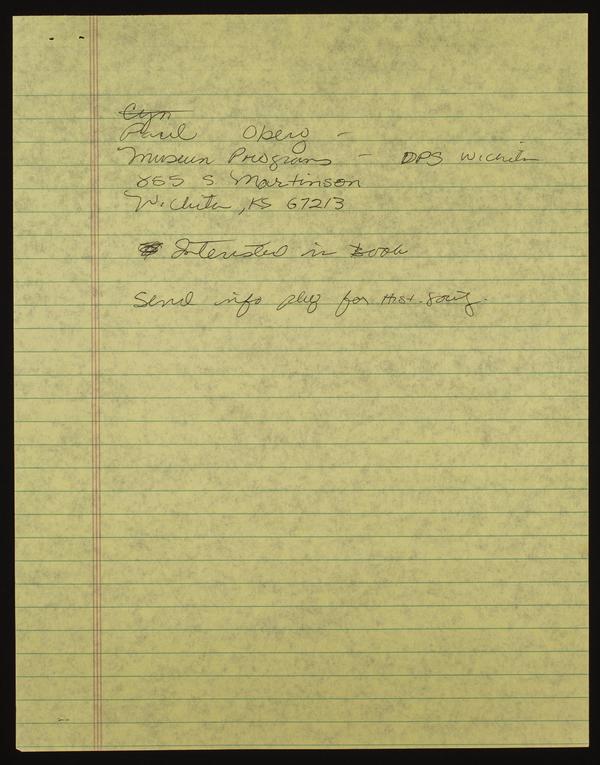 Paul Oberg -
Museum Programs - DPS Wichita
855 S Martinson
Wichita, KS 67213
Interested in Book
Send info pkg for Hist. Soc'y.